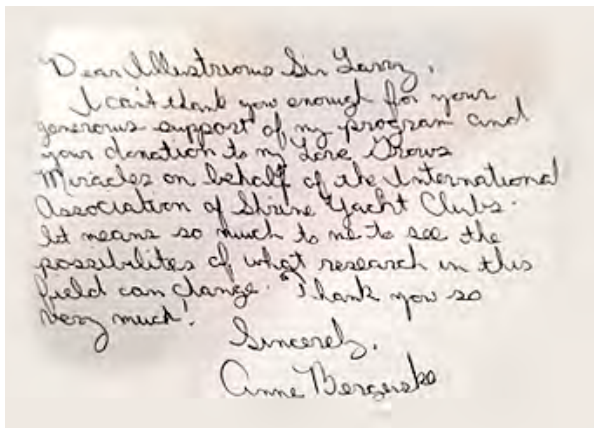 Dear Illustrious Sir Larry,
I can't thank you enough for your
generous support of my program and
your donation to my Love Grows
Miracles on behalf of the International
Association of Shrine Yacht Clubs.
It means so much to me to see the
possibilites of what research in this
field can change. Thank you so
very much!
Sincerely,
Anne